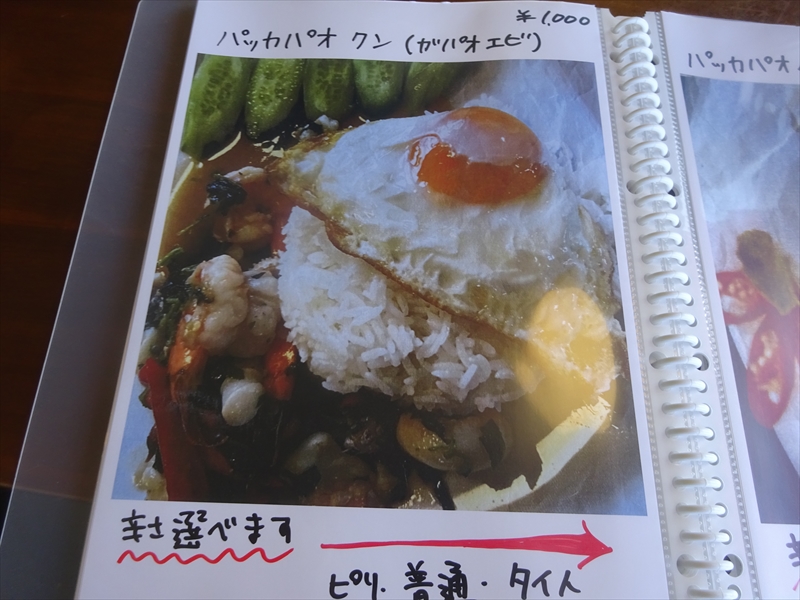 ¥1,000
パッカパオ クン (ガパオエビ)
辛さ選べます
ピリ・普通・タイ人
パッカパオ